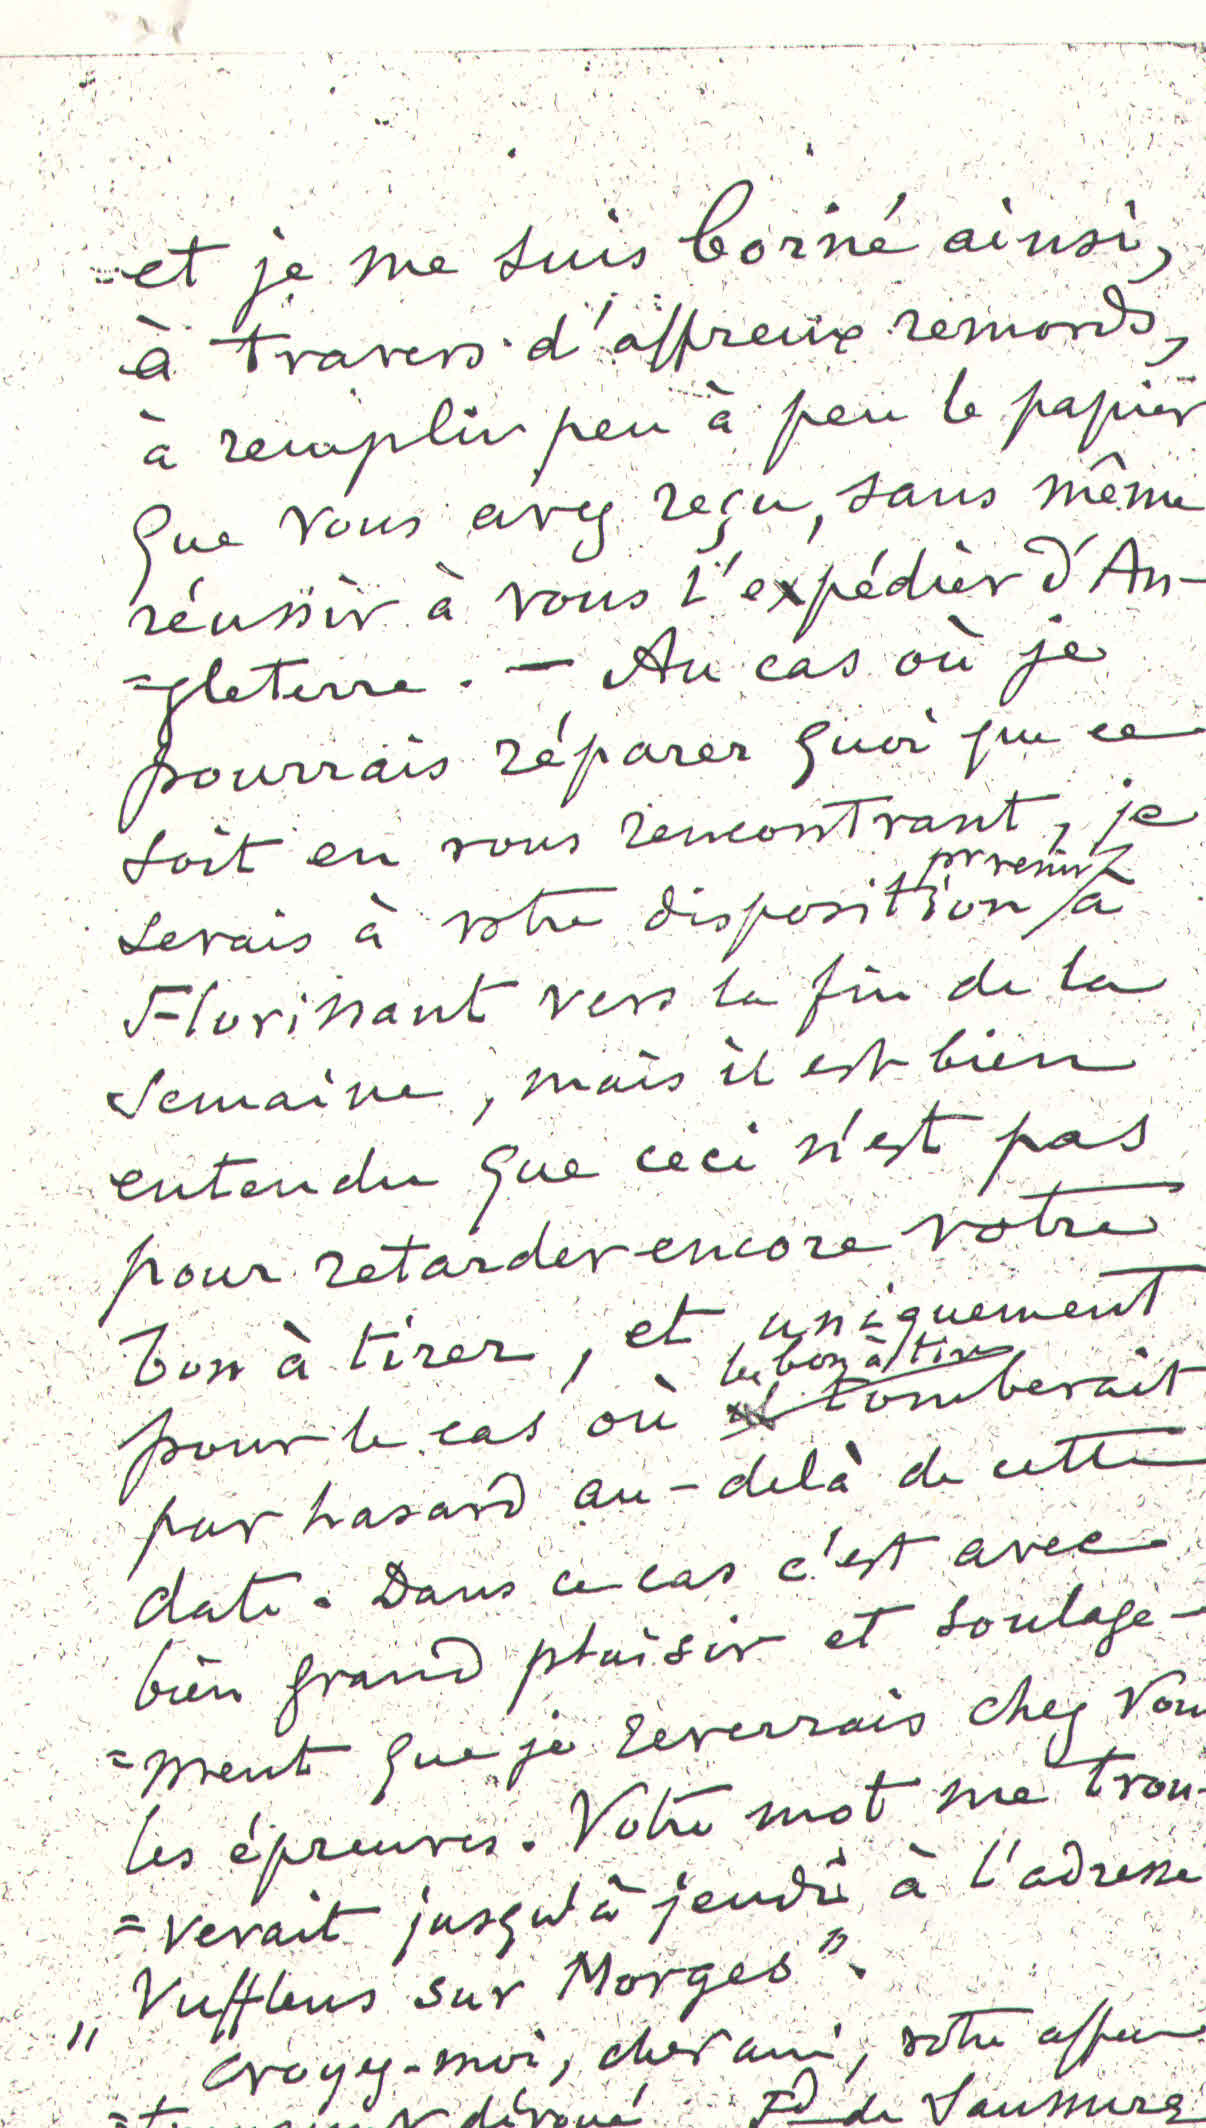 et je me suis borné ainsi,
à travers d'affreux remords,
à remplir peu à peu le papier
que vous avez reçu, sans même
réussir à vous l'expédier d'An-
=gleterre. — Au cas où je
pourrais réparer quoi que ce
soit en vous rencontrant, je
pr venir
serais à votre disposition à
Florissant vers la fin de la
semaine, mais il est bien
entendu que ceci n'est pas
pour retarder encore votre
bon à tirer, et uniquement
le bon à tirer
pour le cas où tomberait
par hasard au-delà de cette
date. Dans ce cas c'est avec
bien grand plaisir et soulage-
=ment que je reverrais chez vous
les épreuves. Votre mot me trou-
=verait jusqu'à jeudi à l'adresse
„Vufflens sur Morges”.
Croyez-moi, cher ami, votre affec
=tueusement dévoué Fd de Saussure